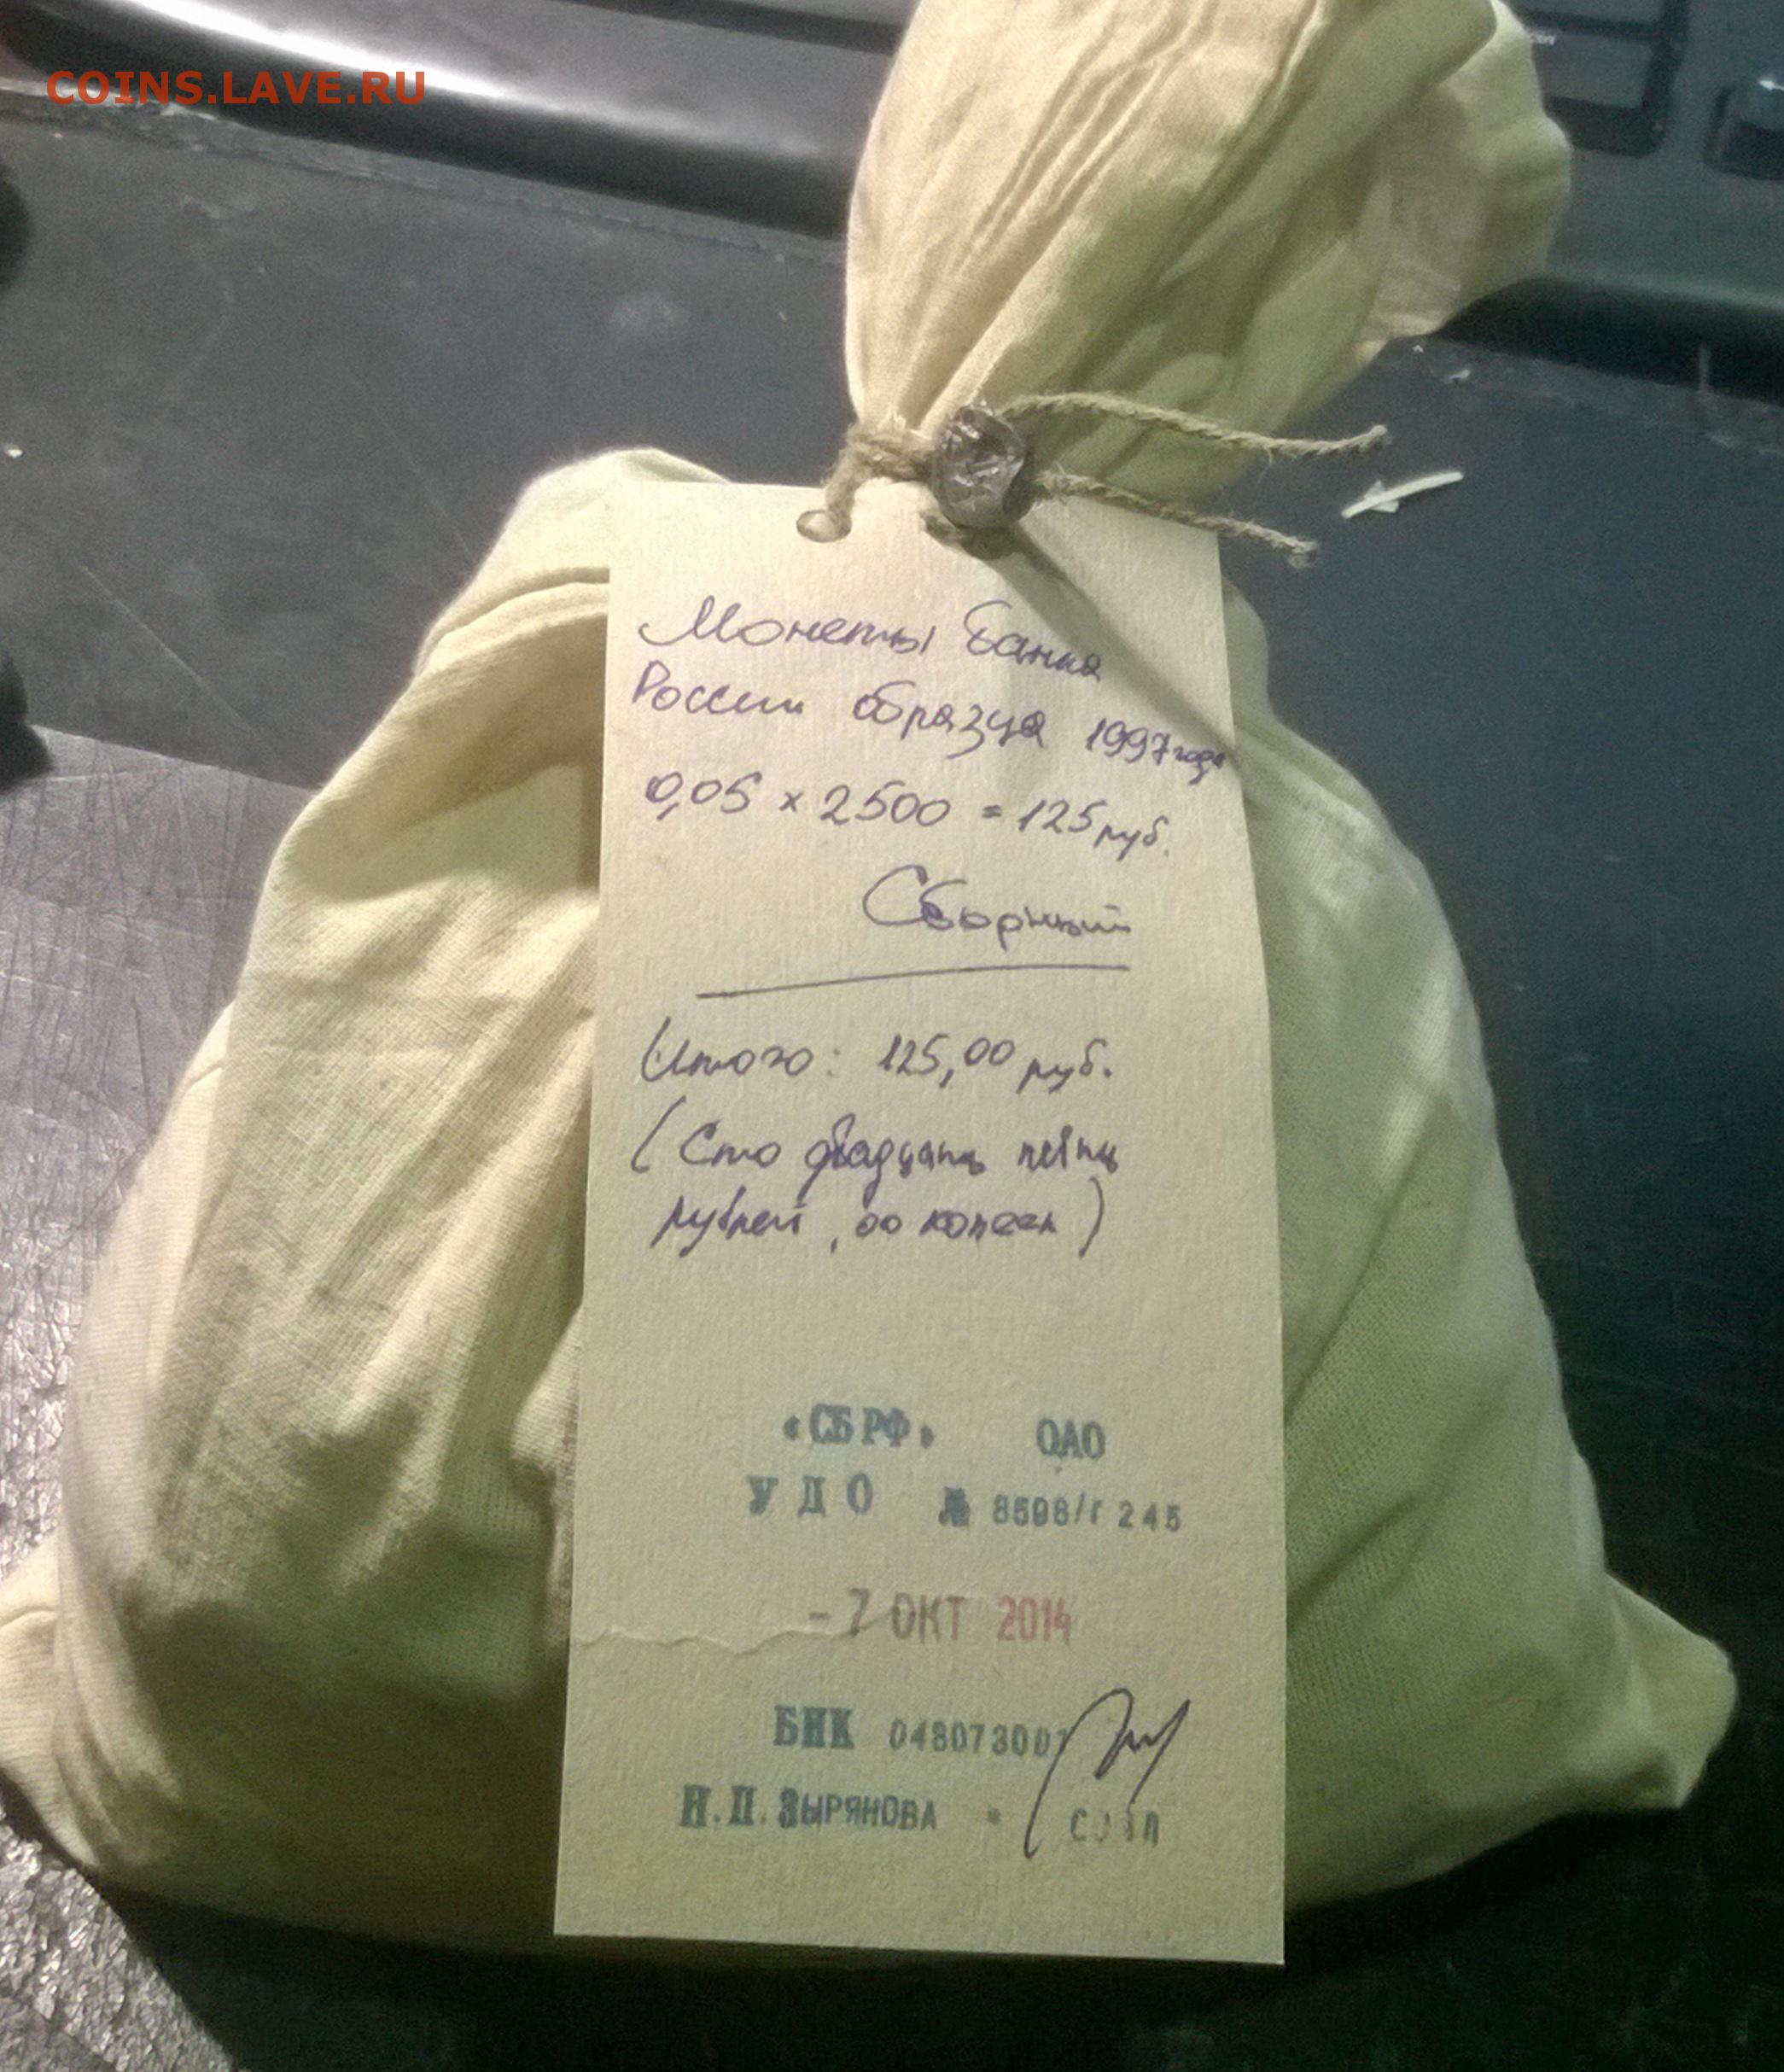 COINS.LAVE.RU
Монеты Банка
России образца 1997 года
0,05 × 2500 = 125 руб.
Сборный
Итого: 125,00 руб.
(Сто двадцать пять
рублей, 00 копеек)
«СБ РФ» ОАО
УДО № 8598/ 245
- 7 ОКТ 2014
БИК 048073001
Н.П. ЗЫРЯНОВА